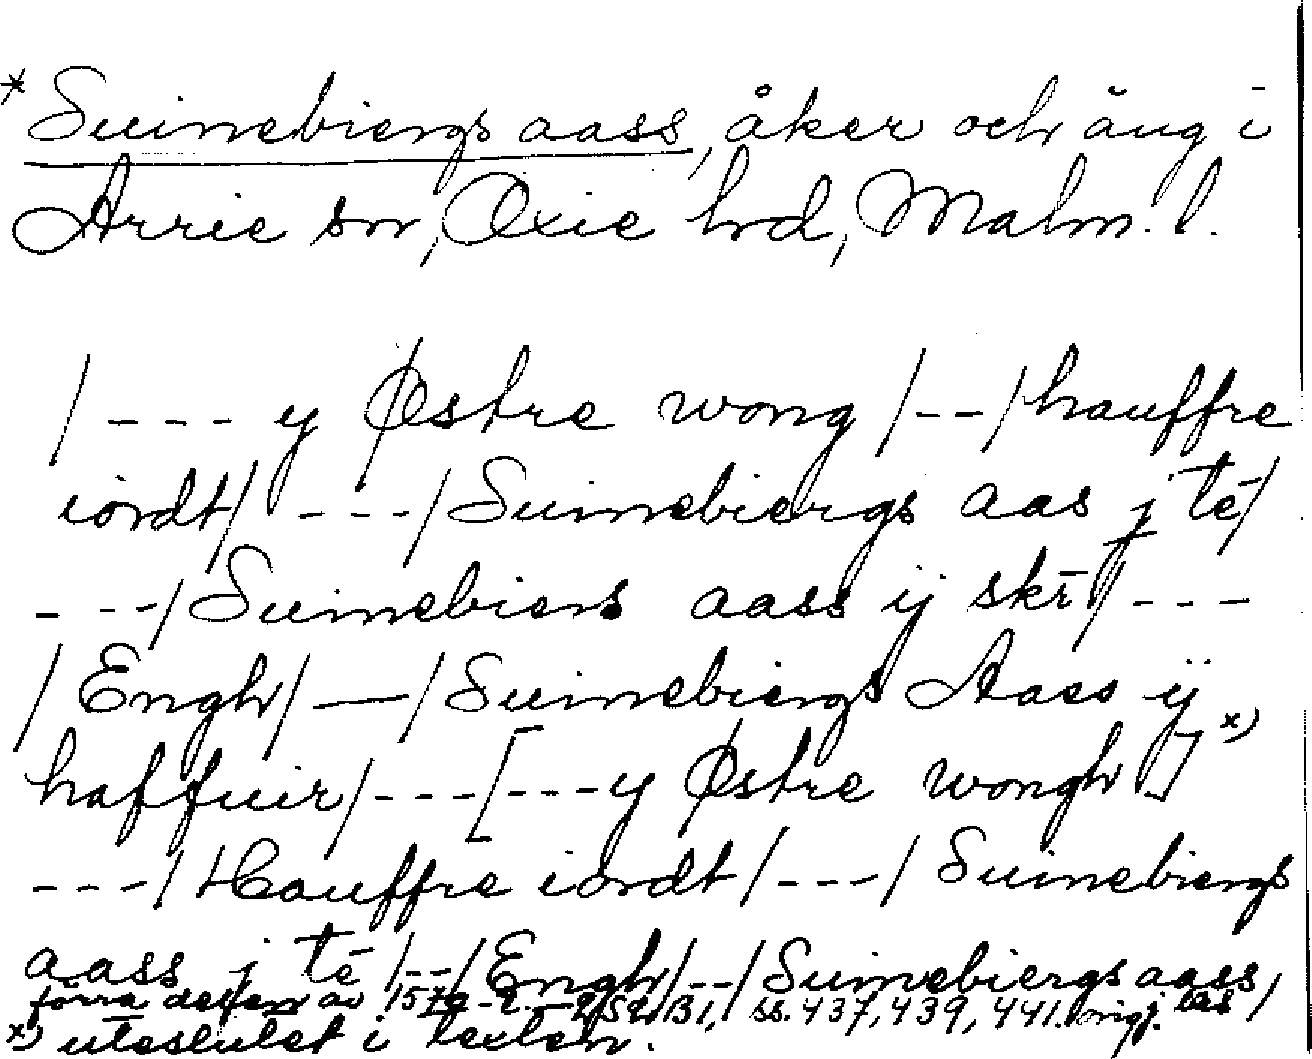 * Suinebiergs aass, åker och äng i
Arrie sn, Oxie hd, Malm. l.
/ - - - y Østre wong / - - / hauffre
iordt / - - - / Suinebiergs aas j tē /
- - - / Suinebiers aass ÿ skī / - - -
/ Engh / — / Suinebiergs Aass ÿ
haffuir / - - - [ - - - y Østre wongh ] x)
- - - / Hauffre iordt / - - - / Suinebiergs
aass j tē / - - / Engh / - - / Suinebiergs aass /
förra delen av ss. 437, 439, 441.
x) uteslutet i texten.